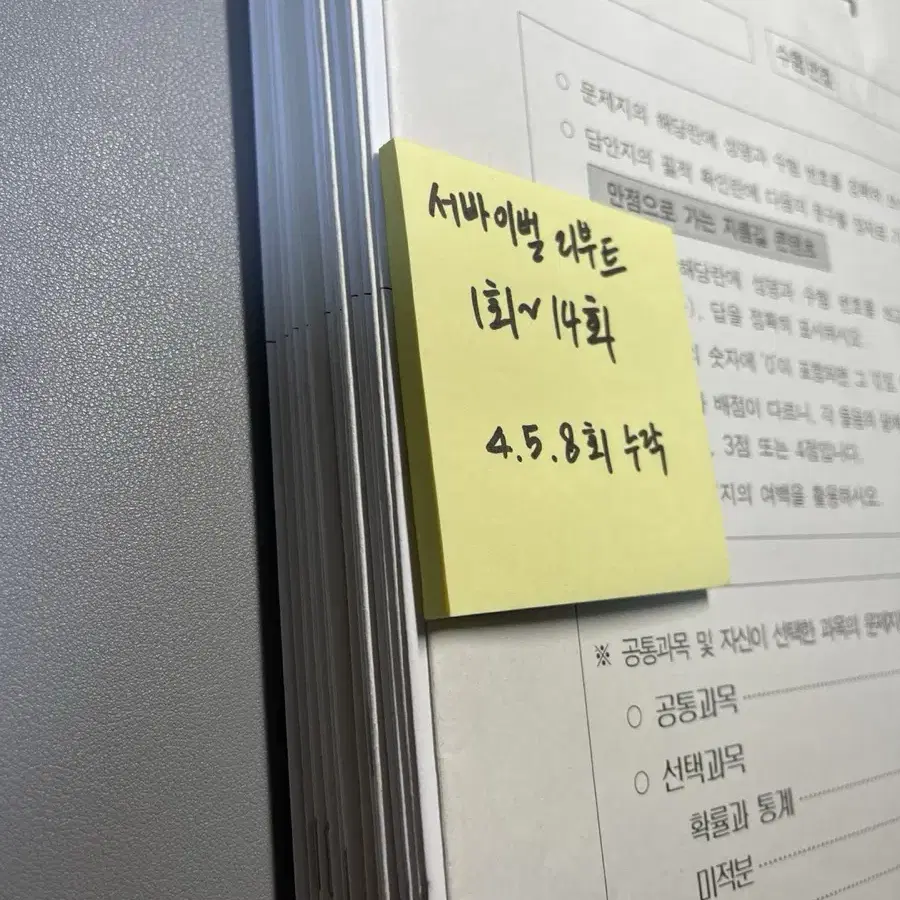 수험 번호
○ 문제지의 해당란에 성명과 수험 번호를 정확히
○ 답안지의 필적 확인란에 다음의 문구를 정자로
만점으로 가는 지름길 콘텐츠
해당란에 성명과 수험 번호를
답을 정확히 표시하시오.
숫자에 '0'이 포함되면 그
배점이 다르니, 각 물음의
3점 또는 4점입니다.
지의 여백을 활용하시오.
서바이벌 리부트
1회~14회
4.5.8회 누락
※ 공통과목 및 자신이 선택한 과목의 문제지
○ 공통과목
○ 선택과목
확률과 통계
미적분